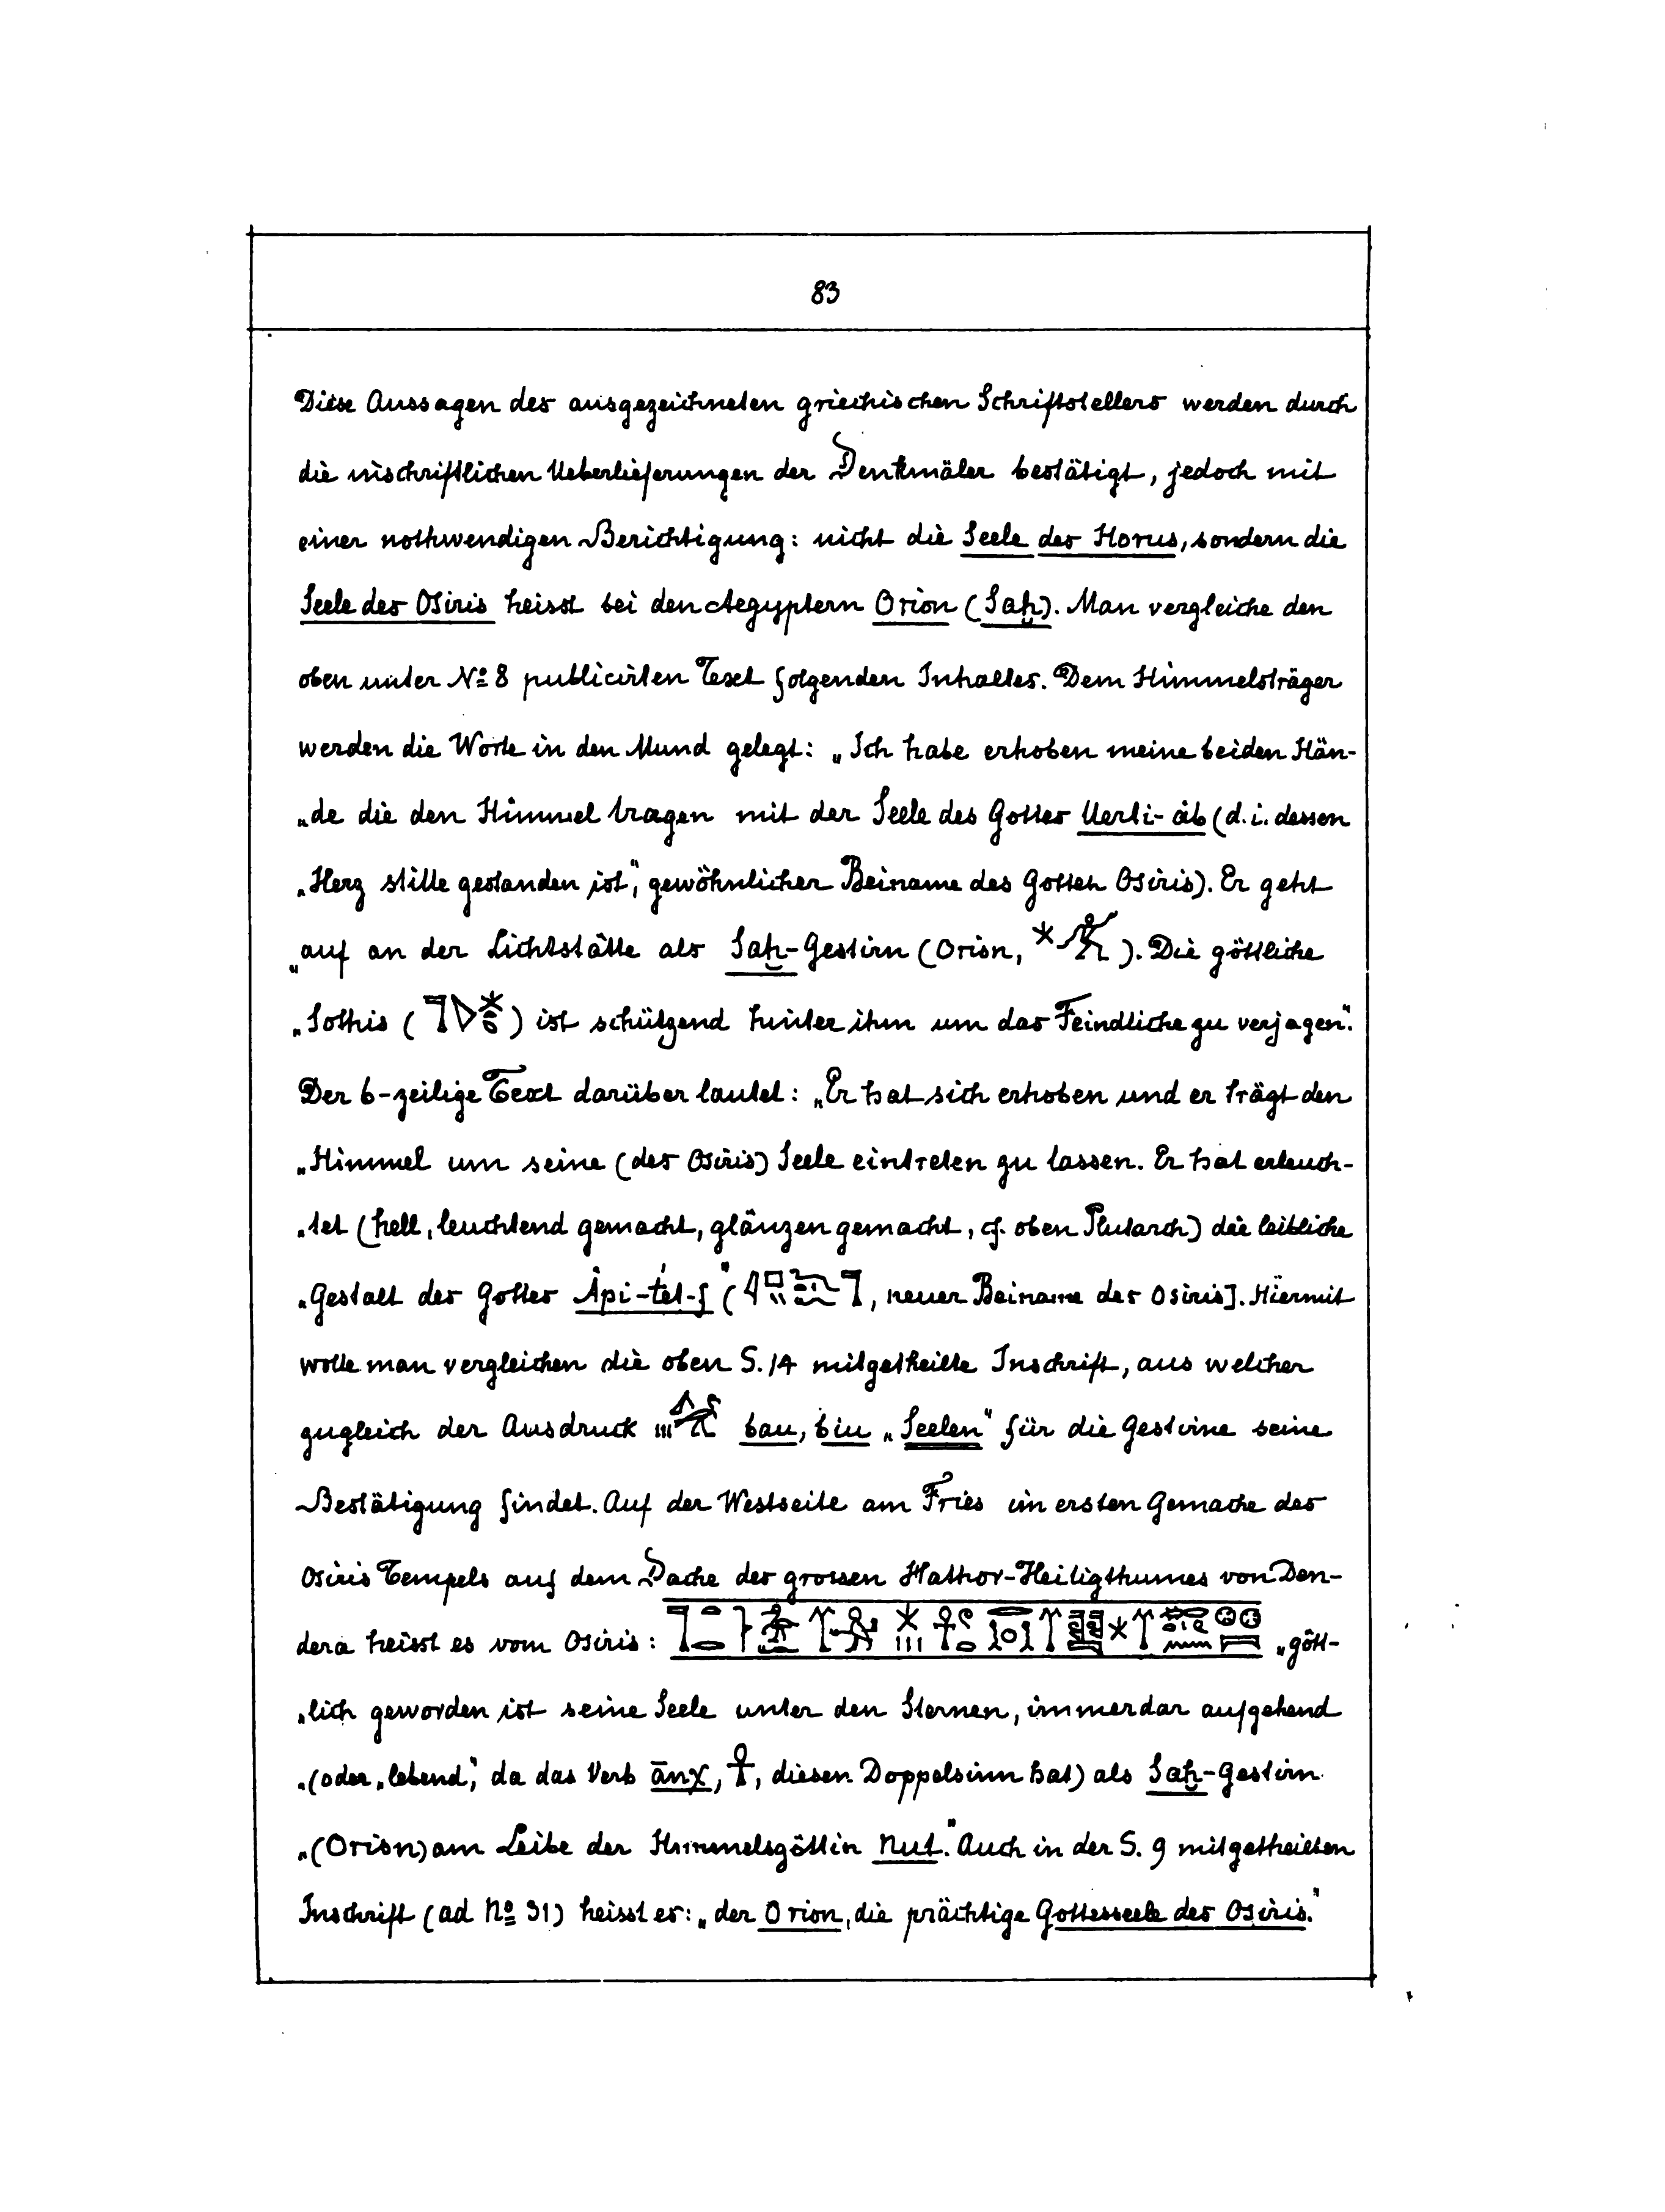 83
Diese Aussagen des ausgezeichneten griechischen Schriftstellers werden durch
die inschriftlichen Ueberlieferungen der Denkmäler bestätigt, jedoch mit
einer nothwendigen Berichtigung: nicht die Seele des Horus, sondern die
Seele des Osiris heisst bei den Aegyptern Orion (Saḥ). Man vergleiche den
oben unter No 8 publicirten Text folgenden Inhaltes. Dem Himmelsträger
werden die Worte in den Mund gelegt: „Ich habe erhoben meine beiden Hän-
„de die den Himmel tragen mit der Seele des Gottes Uerti-ȧb (d.i. dessen
„Herz stille gestanden ist“, gewöhnlicher Beiname des Gottes Osiris). Er geht
„auf an der Lichtstätte als Saḥ-Gestirn (Orion, ). Die göttliche
„Sothis ( ) ist schützend hinter ihm um das Feindliche zu verjagen“.
Der 6-zeilige Text darüber lautet: „Er hat sich erhoben und er trägt den
„Himmel um seine (des Osiris) Seele eintreten zu lassen. Er hat erleuch-
„tet (hell, leuchtend gemacht, glänzen gemacht, cf. oben Plutarch) die leibliche
„Gestalt des Gottes Ȧpi-tet-f“ ( , neuer Beiname des Osiris]. Hiermit
wolle man vergleichen die oben S. 14 mitgetheilte Inschrift, aus welcher
zugleich der Ausdruck bau, biu „Seelen“ für die Gestirne seine
Bestätigung findet. Auf der Westseite am Fries im ersten Gemache des
Osiris Tempels auf dem Dache des grossen Hathor-Heiligthumes von Den-
dera heisst es vom Osiris: „gött-
„lich geworden ist seine Seele unter den Sternen, immerdar aufgehend
„(oder „lebend“, da das Verb ānχ, 𓋹, diesen Doppelsinn hat) als Saḥ-Gestirn
„(Orion) am Leibe der Himmelsgöttin Nut.“ Auch in der S. 9 mitgetheilten
Inschrift (ad No 31) heisst es: „der Orion, die prächtige Gottesseele des Osiris.“